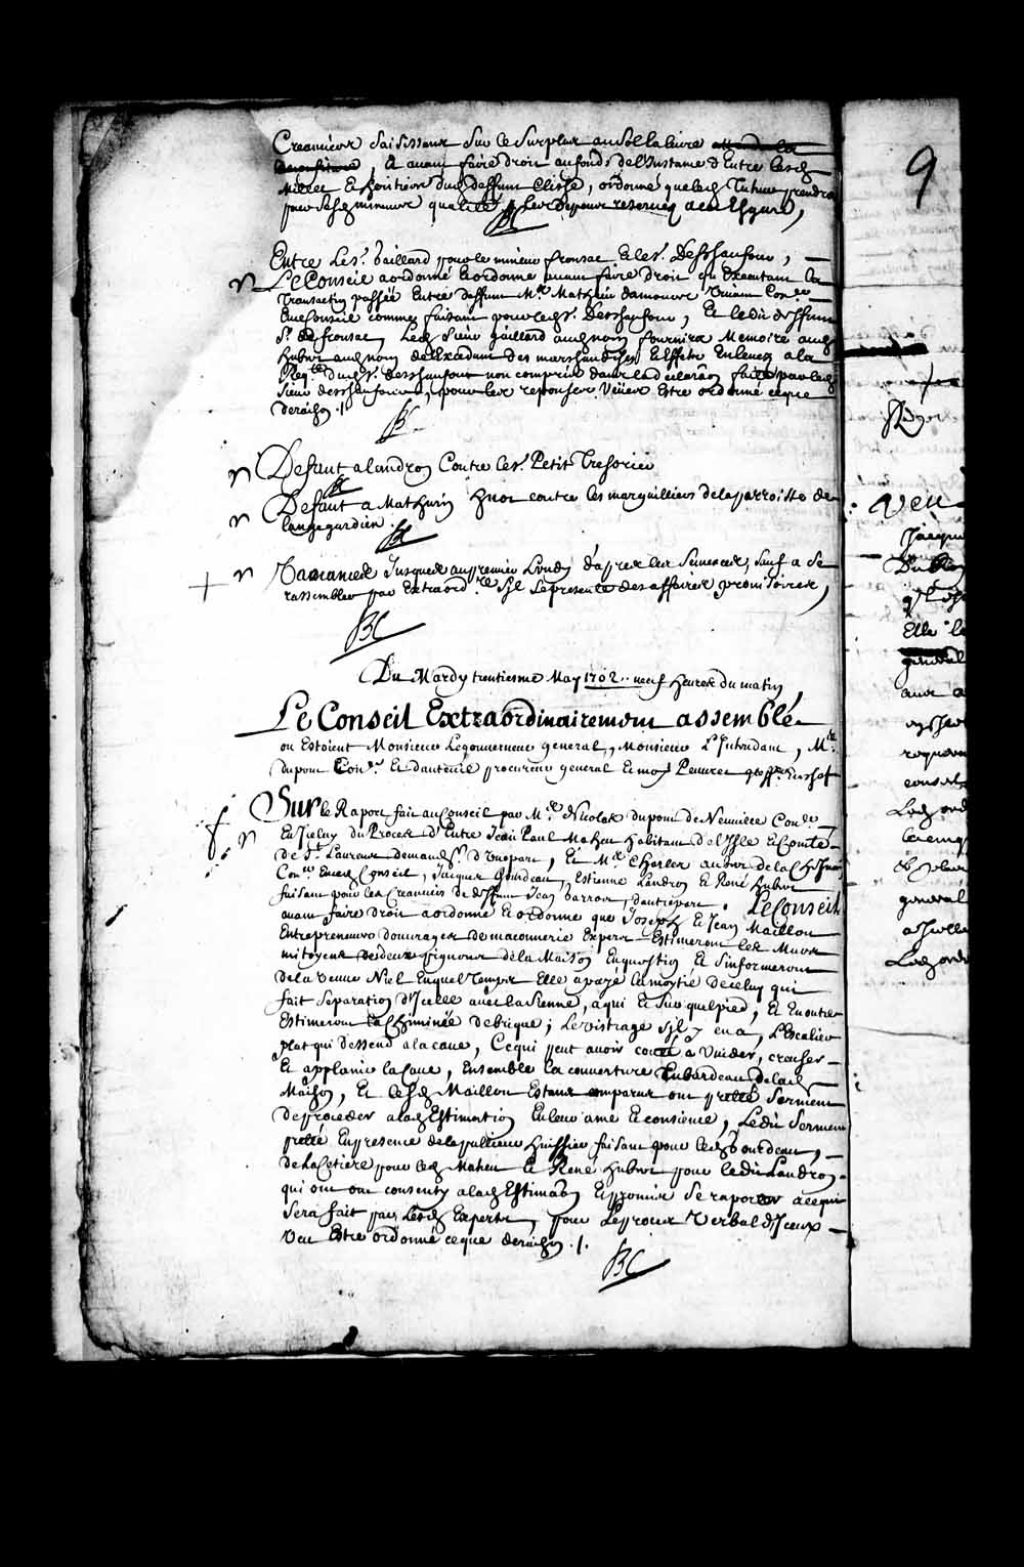 Creanciers saisissans sur le surplus
, Et avant faire droit au fonds de l'Instance d'Entre lesd.
Millet Et heritiers dud. deffunt , ordonné que led. Tuteur prendra
pour sesd. mineurs qualité, reservez a cet Esgard,
BC
Entre Le Sr. Gaillard pour le mineur fronsac Et le Sr. Deschaufour, —
Le Conseil a ordonné Et ordonne avant faire droit qu'en Executant la
Transaction passée Entre deffunt Me. Mathieu Damours vivant Con.er
En ce Conseil comme faisant pour led. Sr. Deschaufour, Et led. deffunt
Sr. de fronsac, Led. Sieur Gaillard aud. nom fournira Memoire aud.
hubert aud. nom de l'Excedent des marchandises Et Effets Enlevez a la
Req.te dud. Sr. deschaufour non compris dans la declaraôn faite par led.
Sieur deschaufour, pour les reponses veües Estre ordonné ce que
de raison ./.
BC
Defaut a landron Contre le Sr. Petit Tresorier
BC
Defaut a Mathurin huot contre les marguilliers de la parroisse de
l'ange gardien
BC
Vaccances Jusques au premier Lundy d'apres les Semences, sauf a se
rassembler par Extraord.re s'il se presente des affaires provisoires,
BC
Du Mardy trentiesme May 1702 .. neuf heures du matin,
Le Conseil Extraordinairement assemblé
ou Estoient Monsieur Le gouverneur general, Monsieur L'Intendant, Me.
dupont Con.er Et dauteuil procureur general Et moy Peuvret greff.er En chef
Sur le Raport fait au Conseil par Me. Nicolas dupont de Neuville Con.er
En Iceluy du Procez d'Entre Jean Paul Maheu habitant de l'Isle Et Comté
de St. Laurent demand.r d'Unepart, Et Me. Charles aubert de la Chesnaye
Con.er Enced. Conseil, Jacques Gourdeau, Estienne Landron Et René hubert
faisant pour les Creanciers de deffunt Jean , d'autrepart. Le Conseil
avant faire droit a ordonné Et ordonne que Joseph Et Jean Maillou
Entrepreneurs d'ouvrages de maconnerie Expers Estimeront les Murs
mitoyens des deux pignons de la Maison En question Et s'informeront
de la veuve Niel En quel temps Elle a payé la moytié de celuy qui
fait separation d'Icelle avec la sienne, a qui Et sur quel pied, Et En outre
Estimeront la Cheminée de brique; Le vistrage s'il y en a, L'Escalier
plat qui dessend a la cave, Ce qui peut avoir cousté a vuider, creuser
Et applanir la Cave, Ensemble la couverture En bardeau de lad.
Maison, Et lesd. Maillou Estans comparus ont presté serment
de proceder a lad. Estimation En leur ame Et consience, Ledit serment
presté En presence de la palliere huissier faisant pour led. Gourdeau, —
de la Cetiere pour led. Maheu Et René hubert pour ledit Landron,
qui ont ont consenty a lad. Estimaôn Et promis se raporter a ce qui
sera fait par lesd. Experts, pour Le procez verbal d'Iceux —
veu Estre ordonné ce que de raison ./.
BC
9
Veu
Jacques
Elle le
general
general